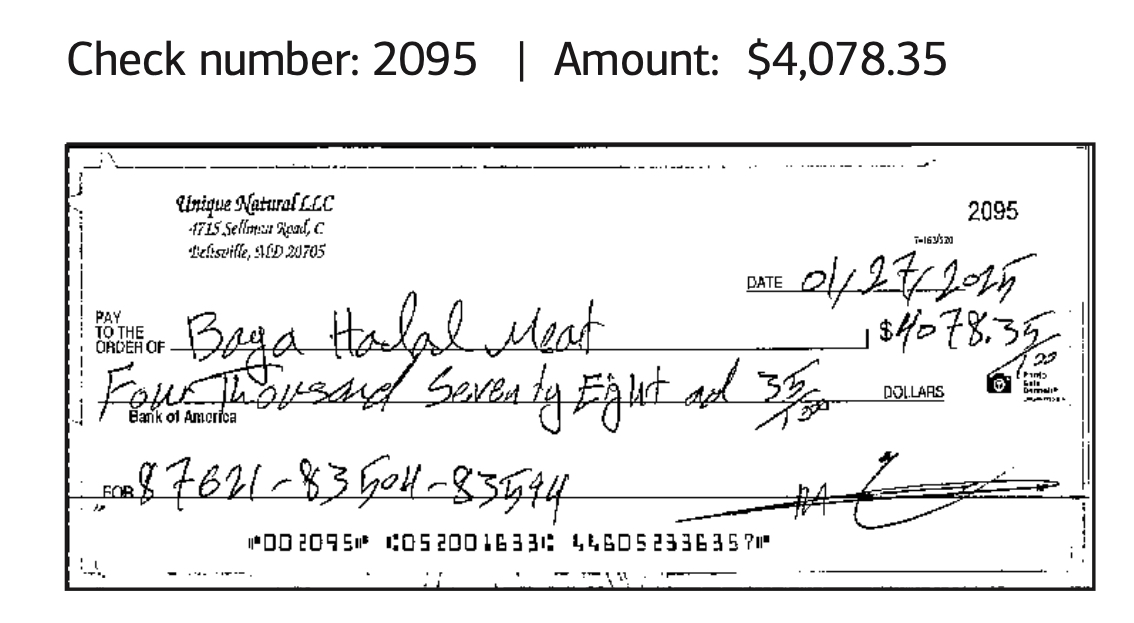 Check number: 2095 | Amount: $4,078.35
Unique Natural LLC
2095
4715 Sellman Road, C
Beltsville, MD 20705
7-163/520
DATE 01/27/2025
PAY
TO THE
ORDER OF Baga Halal Meat $4078.35/100
Four Thousand Seventy Eght ad 35/100 DOLLARS
Bank of America
FOR 87621-83504-83594
⑈002095⑈ ⑆052001633⑆ 446052336357⑈